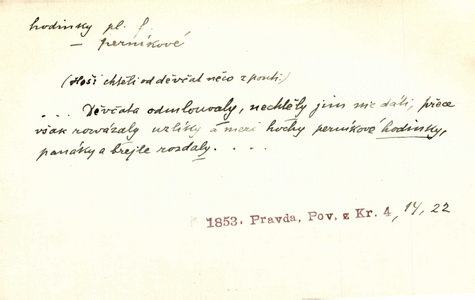 hodinky pl. f.
— perníkové
(Hoši chtěli od děvčat něco z pouti:)
. . . Děvčata odmlouvaly, nechtěly jim nic dáti, přece
však rozvázaly uzlíky a mezi hochy perníkové hodinky,
panáky a brejle rozdaly. . . .
1853. Pravda, Pov. z Kr. 4, 14, 22